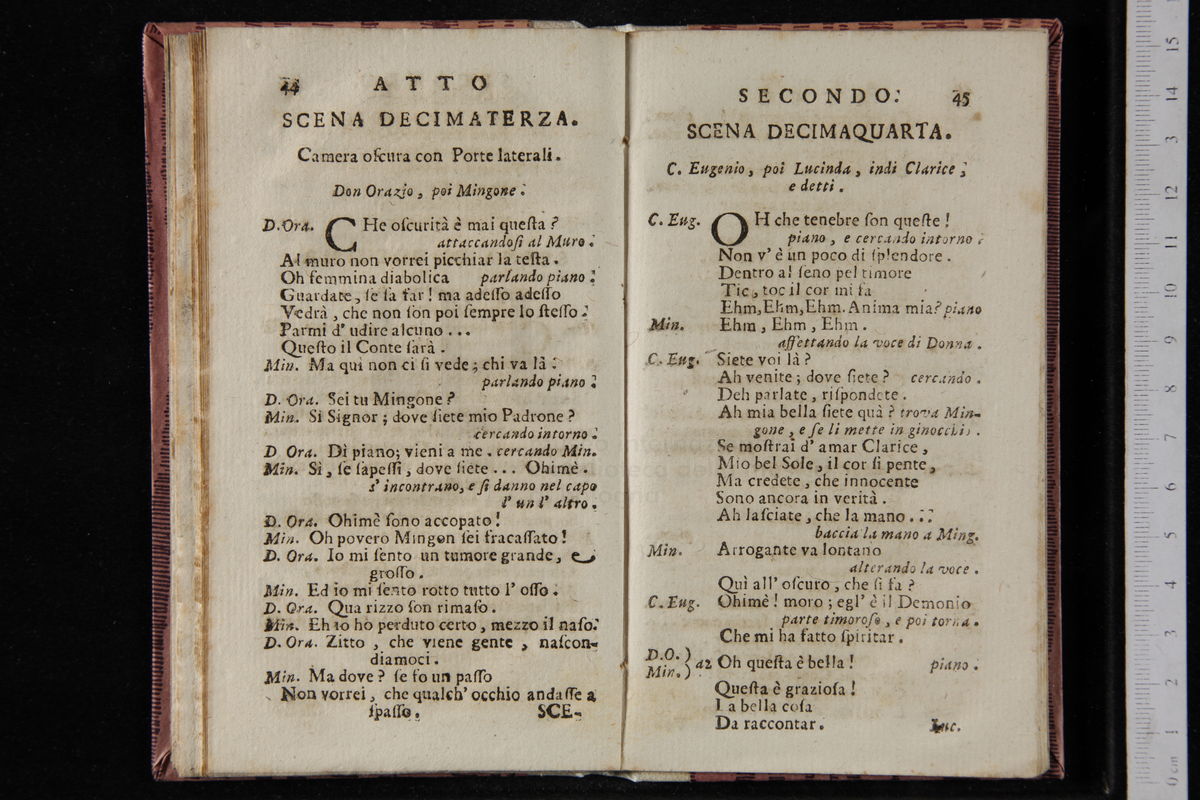 44 ATTO
SCENA DECIMATERZA.
Camera oſcura con Porte laterali.
Don Orazio, poi Mingone.
D. Ora. CHe oſcurità è mai queſta?
attaccandoſi al Muro.
Al muro non vorrei picchiar la teſta.
Oh femmina diabolica parlando piano.
Guardate, ſe ſa far! ma adeſſo adeſſo
Vedrà, che non ſon poi ſempre lo ſteſſo.
Parmi d' udire alcuno...
Queſto il Conte ſarà.
Min. Ma quì non ci ſi vede; chi va là.
parlando piano.
D. Ora. Sei tu Mingone?
Min. Sì Signor; dove ſiete mio Padrone?
cercando intorno.
D Ora. Dì piano; vieni a me. cercando Min.
Min. Sì, ſe ſapeſſi, dove ſiete... Ohimè.
s' incontrano, e ſi danno nel capo
l' un l' altro.
D. Ora. Ohimè ſono accopato!
Min. Oh povero Mingon ſei fracaſſato!
D. Ora. Io mi ſento un tumore grande, e
groſſo.
Min. Ed io mi ſento rotto tutto l' oſſo.
D. Ora. Qua rizzo ſon rimaſo.
Min. Eh io ho perduto certo, mezzo il naſo.
D. Ora. Zitto, che viene gente, naſcon-
diamoci.
Min. Ma dove? ſe fo un paſſo
Non vorrei, che qualch' occhio andaſſe a
ſpaſſo. SCE-
SECONDO. 45
SCENA DECIMAQUARTA.
C. Eugenio, poi Lucinda, indi Clarice,
e detti.
C. Eug. OH che tenebre ſon queſte!
piano, e cercando intorno.
Non v' è un poco di ſplendore.
Dentro al ſeno pel timore
Tic, toc il cor mi fa
Ehm, Ehm, Ehm. Anima mia? piano
Min. Ehm, Ehm, Ehm.
affettando la voce di Donna.
C. Eug. Siete voi là?
Ah venite; dove ſiete? cercando.
Deh parlate, riſpondete.
Ah mia bella ſiete quà? trova Min-
gone, e ſe li mette in ginocchio.
Se moſtrai d' amar Clarice,
Mio bel Sole, il cor ſi pente,
Ma credete, che innocente
Sono ancora in verità.
Ah laſciate, che la mano...
baccia la mano a Ming.
Min. Arrogante va lontano
alterando la voce.
Quì all' oſcuro, che ſi fa?
C. Eug. Ohimè! moro; egl' è il Demonio
parte timoroſo, e poi torna.
Che mi ha fatto ſpiritar.
D.O. )
Min. ) a2 Oh queſta è bella! piano.
Queſta è grazioſa!
La bella coſa
Da raccontar. Luc.